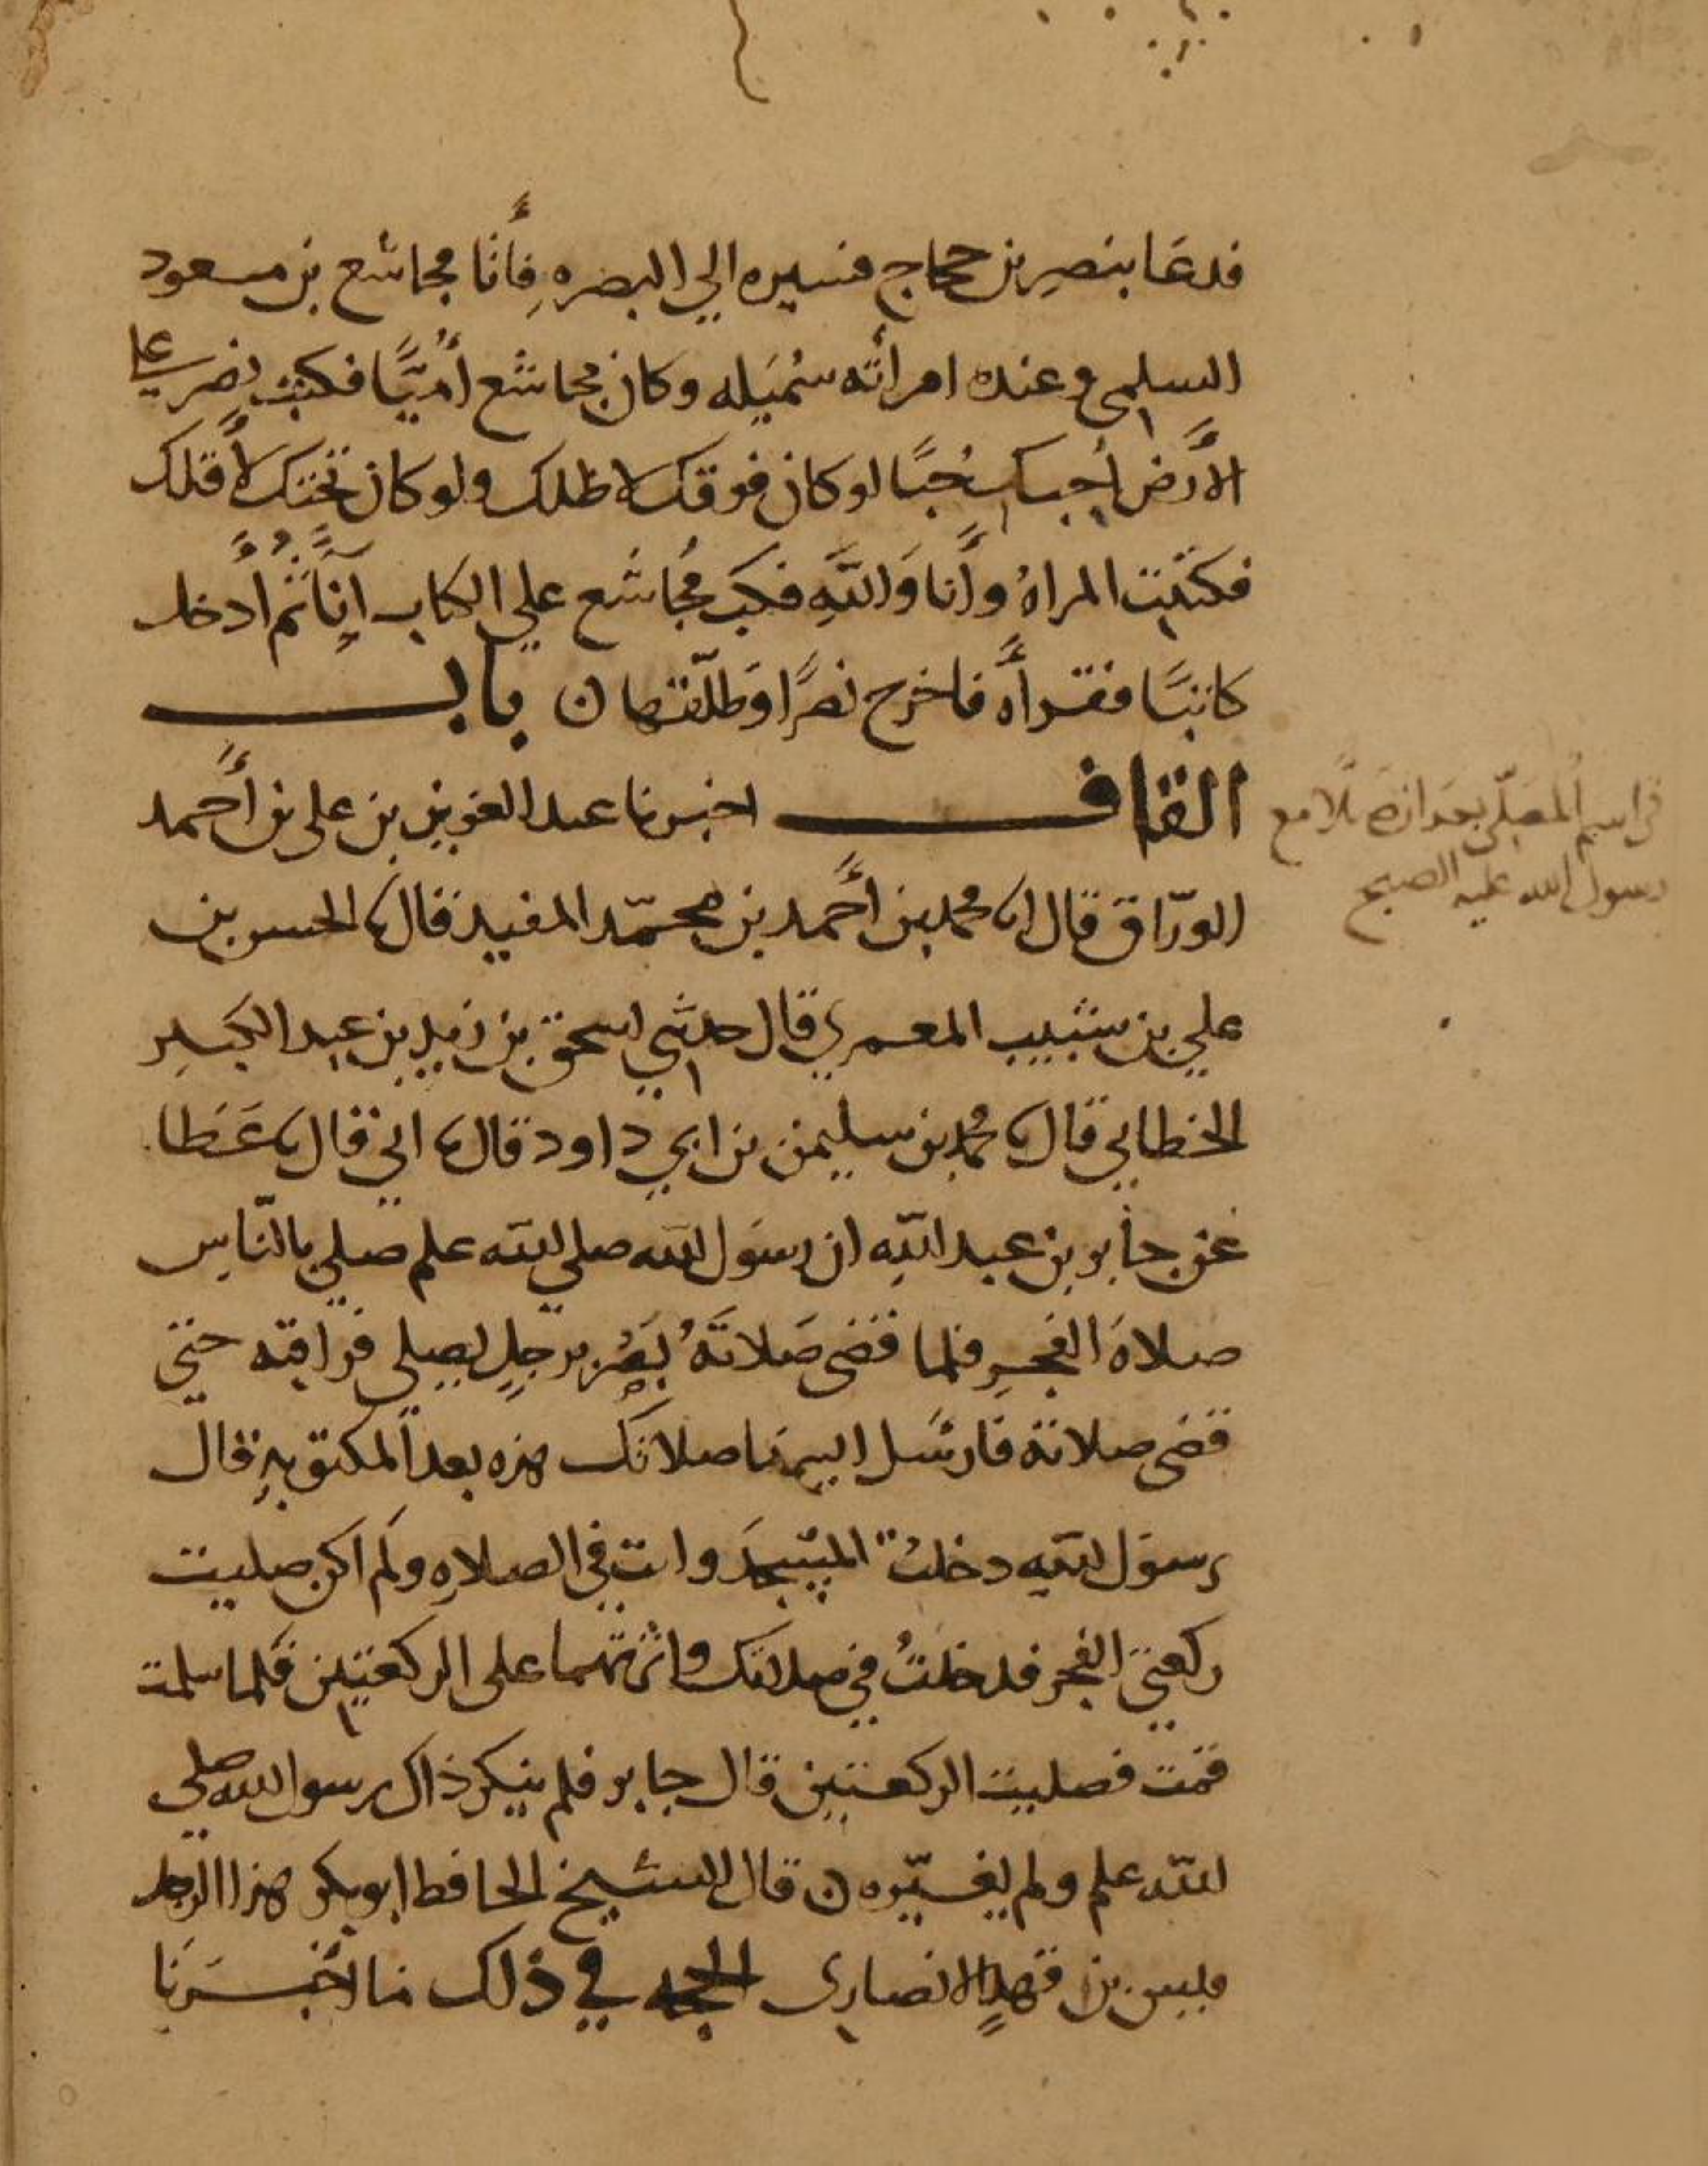 فدعا بنصر بن حجاج فسيره الي البصره فأتا مجاشع بن مسعود
السلمي وعنده امرأته شميله وكان مجاشع أميًّا فكتب نصر علي
الأرض أحبك حُبًّا لو كان فوقك لاظلك ولو كان تحتك لأقلك
فكتبت المراةُ وأنا وَاللَّهِ فكبّ مجُاشع علي الكتاب اناً ثم أدخل
كاتبًا فقرأه فاخرج نصرًا وَطلّقها ن باب
القاف اخبرنا عبد العزيز بن علي بن أحمد
الورّاق قال انا محمد بن أحمد بن محمّد المفيد قال نا الحسن بن
علي بن شبيب المعمري قال حدثني اسحق بن زيد بن عبد الكبير
الخطابي قال نا محمد بن سليمن بن ابي داود قال نا ابي قال نا عَطا
عن جابر بن عبد اللّه ان رسول الله صلي الله علم صلي بالنّاس
صلاةَ الفجرِ فلما قضى صَلاتَهُ بَصُر برجلٍ يصلي فراقبه حتي
قضى صلاته فارسَل اليه ما صلاتك هذه بعد المكتوبهِ قال
رسول الله دخلتُ المسجدَ وانت في الصلاهِ ولم اكن صليت
ركعتي الفجر فدخلتُ في صلاتك واثرتهما على الركعتين فلما سلمت
قمت فصليت الركعتين قال جابر فلم ينكر ذاك رسول الله صلي
الله علم ولم يغيّره ن قال الشيخ الحافظ ابو بكر هذا الرجل
قيس بن قهدٍ الانصاري الحجه في ذلك ما اخبرنَا
في اسم المصلّي بعد انصرافه مع
رسول الله عليه الصبح